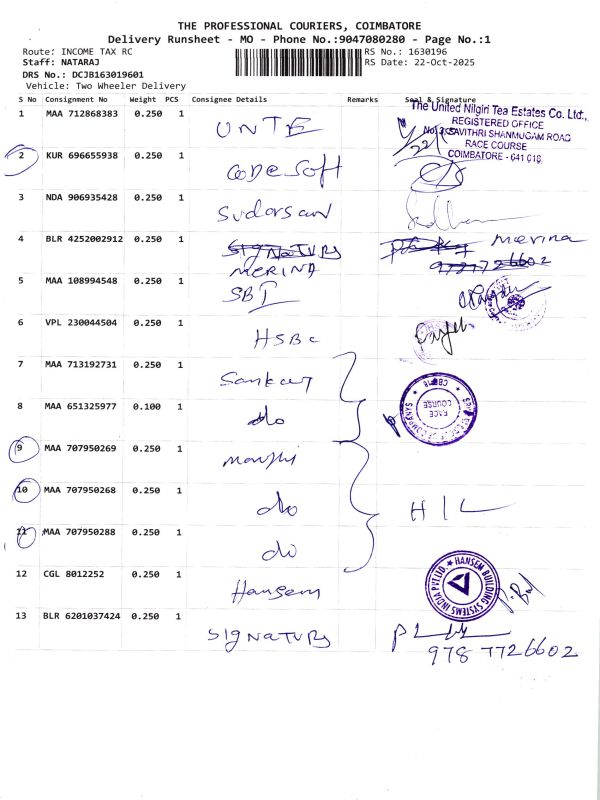 THE PROFESSIONAL COURIERS, COIMBATORE
Delivery Runsheet - MO - Phone No.:9047080280 - Page No.:1
Route: INCOME TAX RC RS No.: 1630196
Staff: NATARAJ RS Date: 22-Oct-2025
DRS No.: DCJB163019601
Vehicle: Two Wheeler Delivery
S No Consignment No Weight PCS Consignee Details Remarks Seal & Signature
The United Nilgiri Tea Estates Co. Ltd.,
REGISTERED OFFICE
No. 3, SAVITHRI SHANMUGAM ROAD
RACE COURSE
COIMBATORE - 641 018.
1 MAA 712868383 0.250 1 UNTE
2 KUR 696655938 0.250 1 CODESOFT
3 NDA 906935428 0.250 1 Sudarsan
4 BLR 4252002912 0.250 1 SIGNATURS merina
MERINA 9787726602
5 MAA 108994548 0.250 1 SBI
6 VPL 230044504 0.250 1 HSBC
7 MAA 713192731 0.250 1 Sankar
8 MAA 651325977 0.100 1 do
RACE COURSE
9 MAA 707950269 0.250 1
10 MAA 707950268 0.250 1 do HIL
11 MAA 707950288 0.250 1 do
12 CGL 8012252 0.250 1 Hansem
HANSEM BUILDING SYSTEMS INDIA PVT LTD
13 BLR 6201037424 0.250 1 SIGNATURS
978 7726602